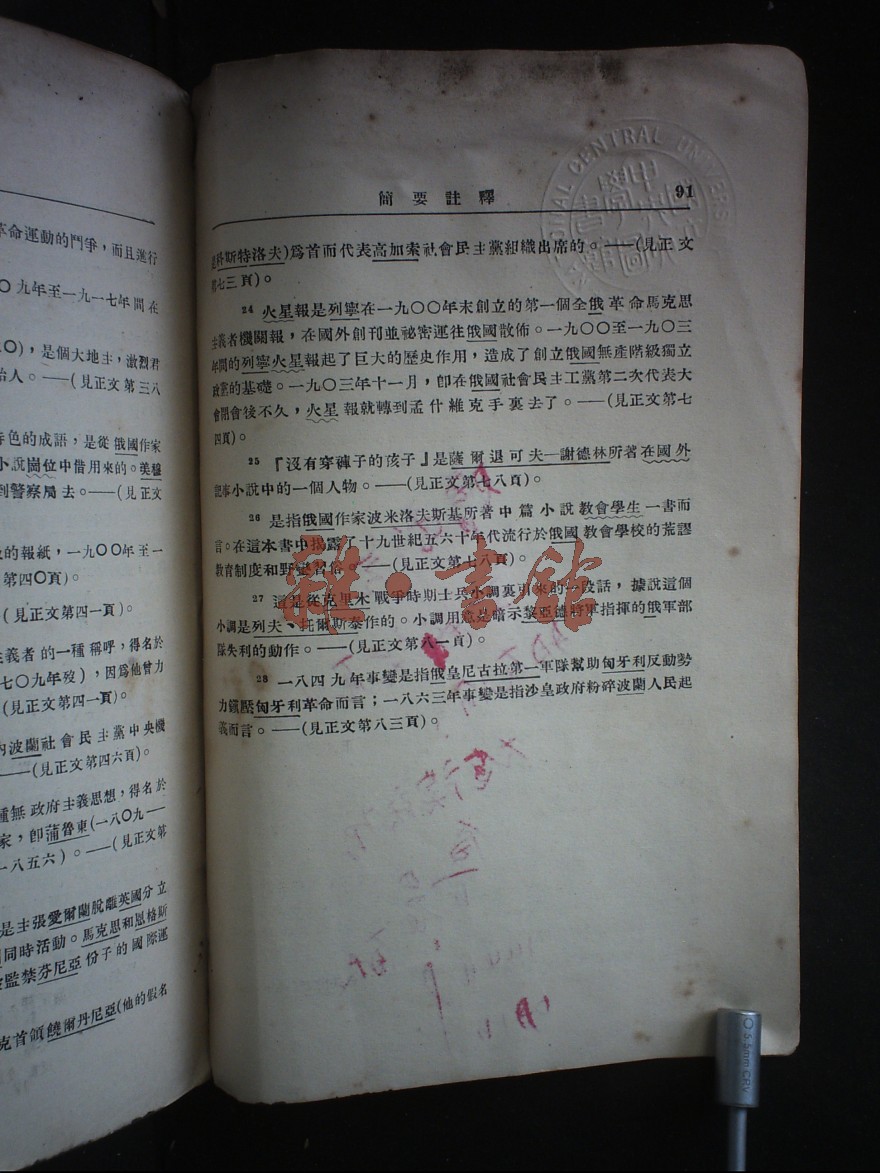 革命運動的鬥爭，而且進行
〇九年至一九一七年間在
〇)，是個大地主，激烈君
始人。——(見正文第三八
特色的成語，是從俄國作家
小說崗位中借用來的。美穆
到警察局去。——(見正文
的報紙，一九〇〇年至一
第四〇頁)。
(見正文第四一頁)。
義者的一種稱呼，得名於
七〇九年歿)，因爲他曾力
(見正文第四一頁)。
內波蘭社會民主黨中央機
——(見正文第四六頁)。
種無政府主義思想，得名於
家，卽蒲魯東(一八〇九—
一八五六)。——(見正文第
是主張愛爾蘭脫離英國分立
同時活動。馬克思和恩格斯
監禁芬尼亞份子的國際運
克首領饒爾丹尼亞(他的假名
簡要註釋 91
是科斯特洛夫)爲首而代表高加索社會民主黨組織出席的。——(見正文
第七三頁)。
24 火星報是列寧在一九〇〇年末創立的第一個全俄革命馬克思
主義者機關報，在國外創刊並祕密運往俄國散佈。一九〇〇至一九〇三
年間的列寧火星報起了巨大的歷史作用，造成了創立俄國無產階級獨立
政黨的基礎。一九〇三年十一月，卽在俄國社會民主工黨第二次代表大
會閉會後不久，火星報就轉到孟什維克手裏去了。——(見正文第七
四頁)。
25 『沒有穿褲子的孩子』是薩爾退可夫—謝德林所著在國外
記事小說中的一個人物。——(見正文第七八頁)。
26 是指俄國作家波米洛夫斯基所著中篇小說教會學生一書而
言。在這本書中揭露了十九世紀五六十年代流行於俄國教會學校的荒謬
教育制度和野蠻習俗。——(見正文第七八頁)。
27 這是從克里木戰爭時期士兵小調裏引來的一段話，據說這個
小調是列夫·托爾斯泰作的。小調用意是暗示黎亞德將軍指揮的俄軍部
隊失利的動作。——(見正文第八一頁)。
28 一八四九年事變是指俄皇尼古拉第一軍隊幫助匈牙利反動勢
力鎮壓匈牙利革命而言；一八六三年事變是指沙皇政府粉碎波蘭人民起
義而言。——(見正文第八三頁)。
雜·書館
CENTRAL UNIVERS
5.5mm CRV